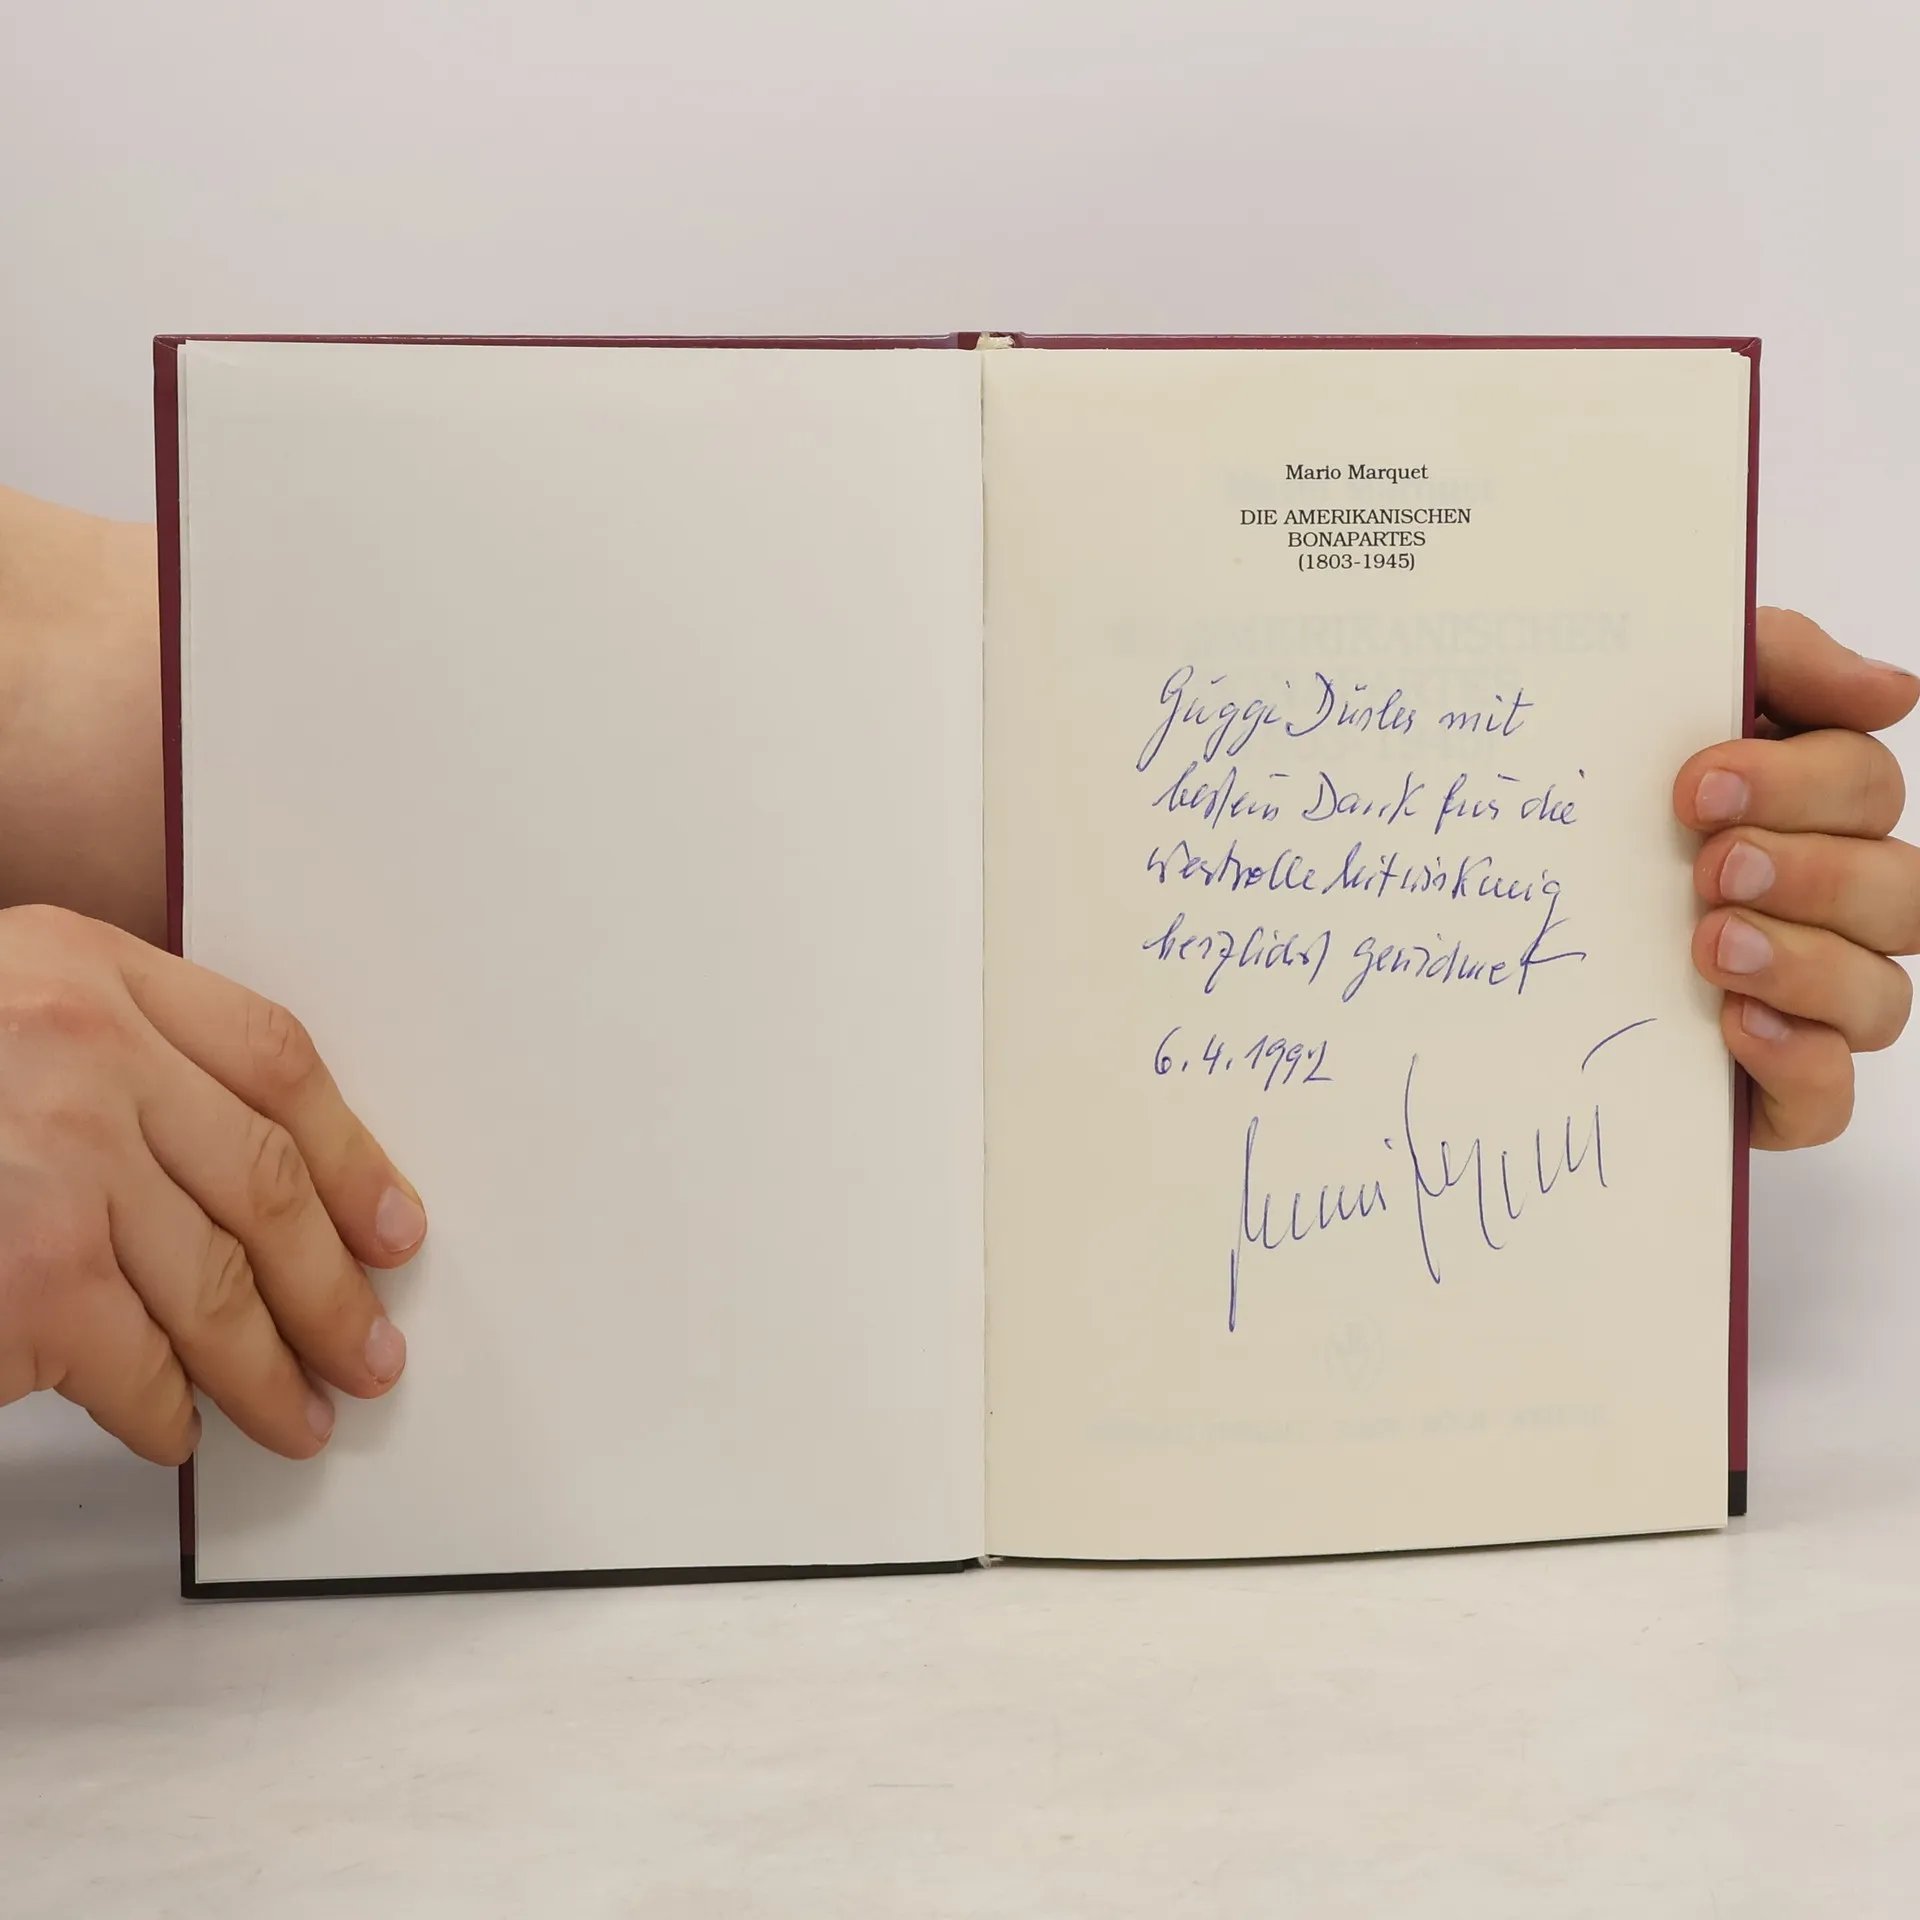 Mario Marquet
DIE AMERIKANISCHEN
BONAPARTES
(1803-1945)
Guggi Dürler mit
bestem Dank für die
wertvolle Mitwirkung
herzlichst gewidmet
6.4.1992